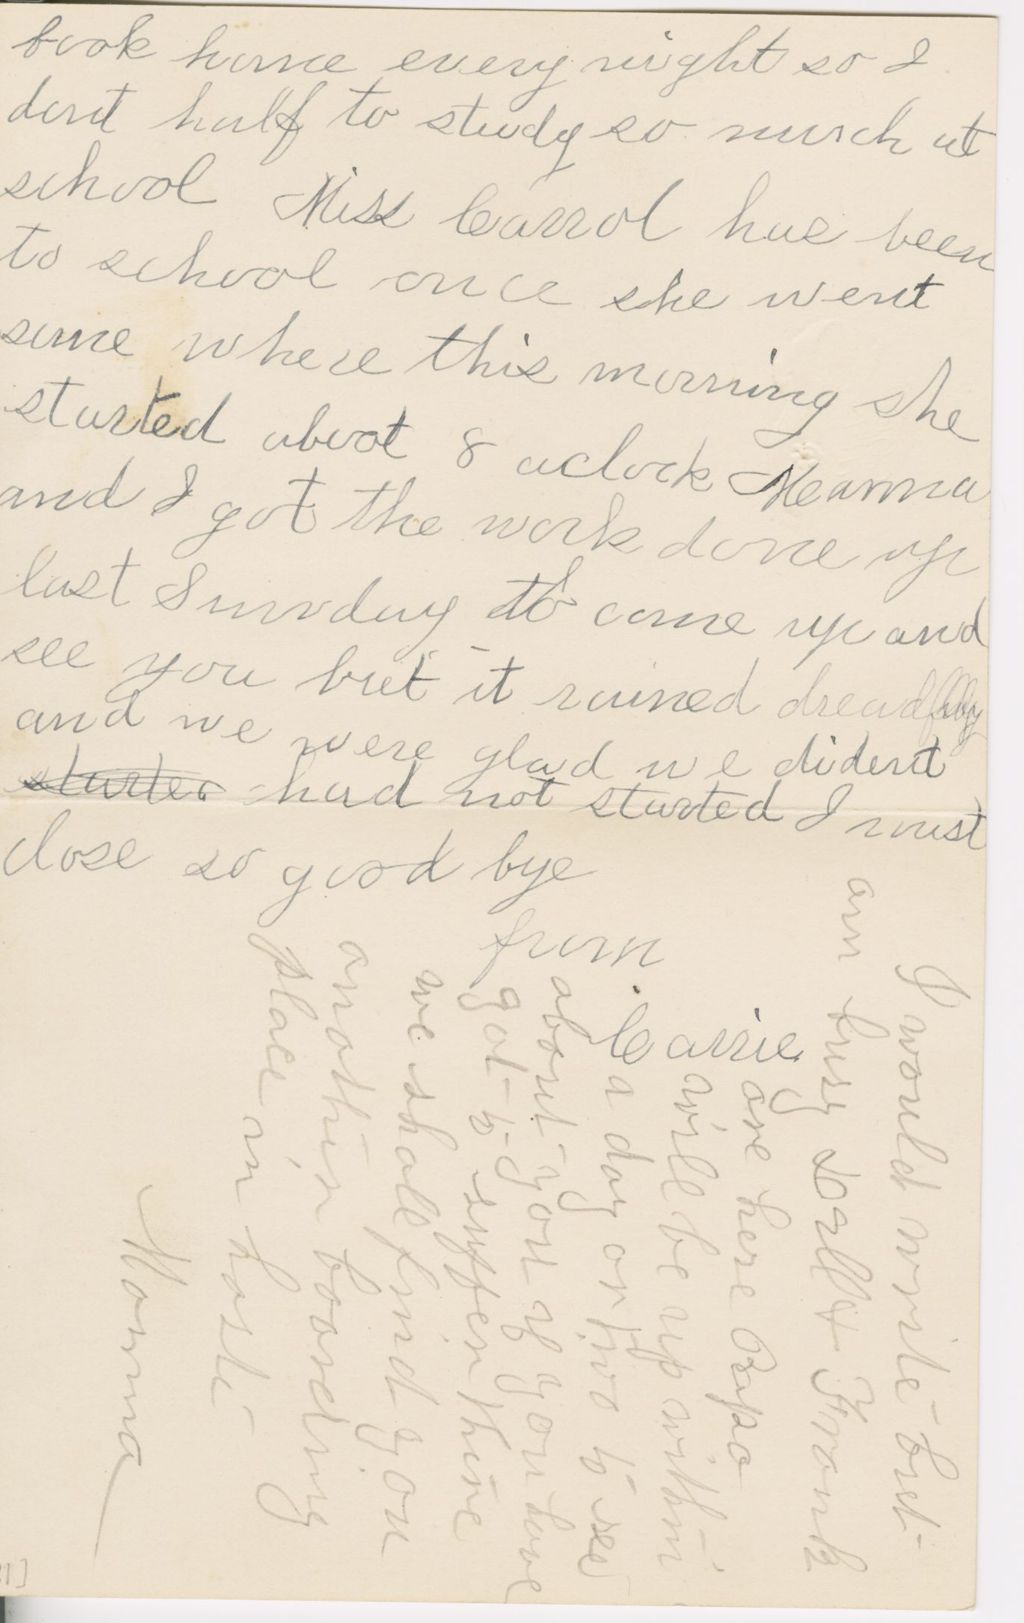 book home every night so I
dont half to study so much at
school Miss Carrol has been
to school once she went
some where this morning she
started about 8 aclock Mamma
and I got the work done up
last Sunday to come up and
see you but it rained dreadfuly
and we were glad we dident
starter had not started I must
close so good bye
from
Carrie
I would write but
am busy Frank
are here Papa
will be up within
a day or two to see
about you if you have
got to suffer there
we shall find you
another boarding
place in haste
Mamma